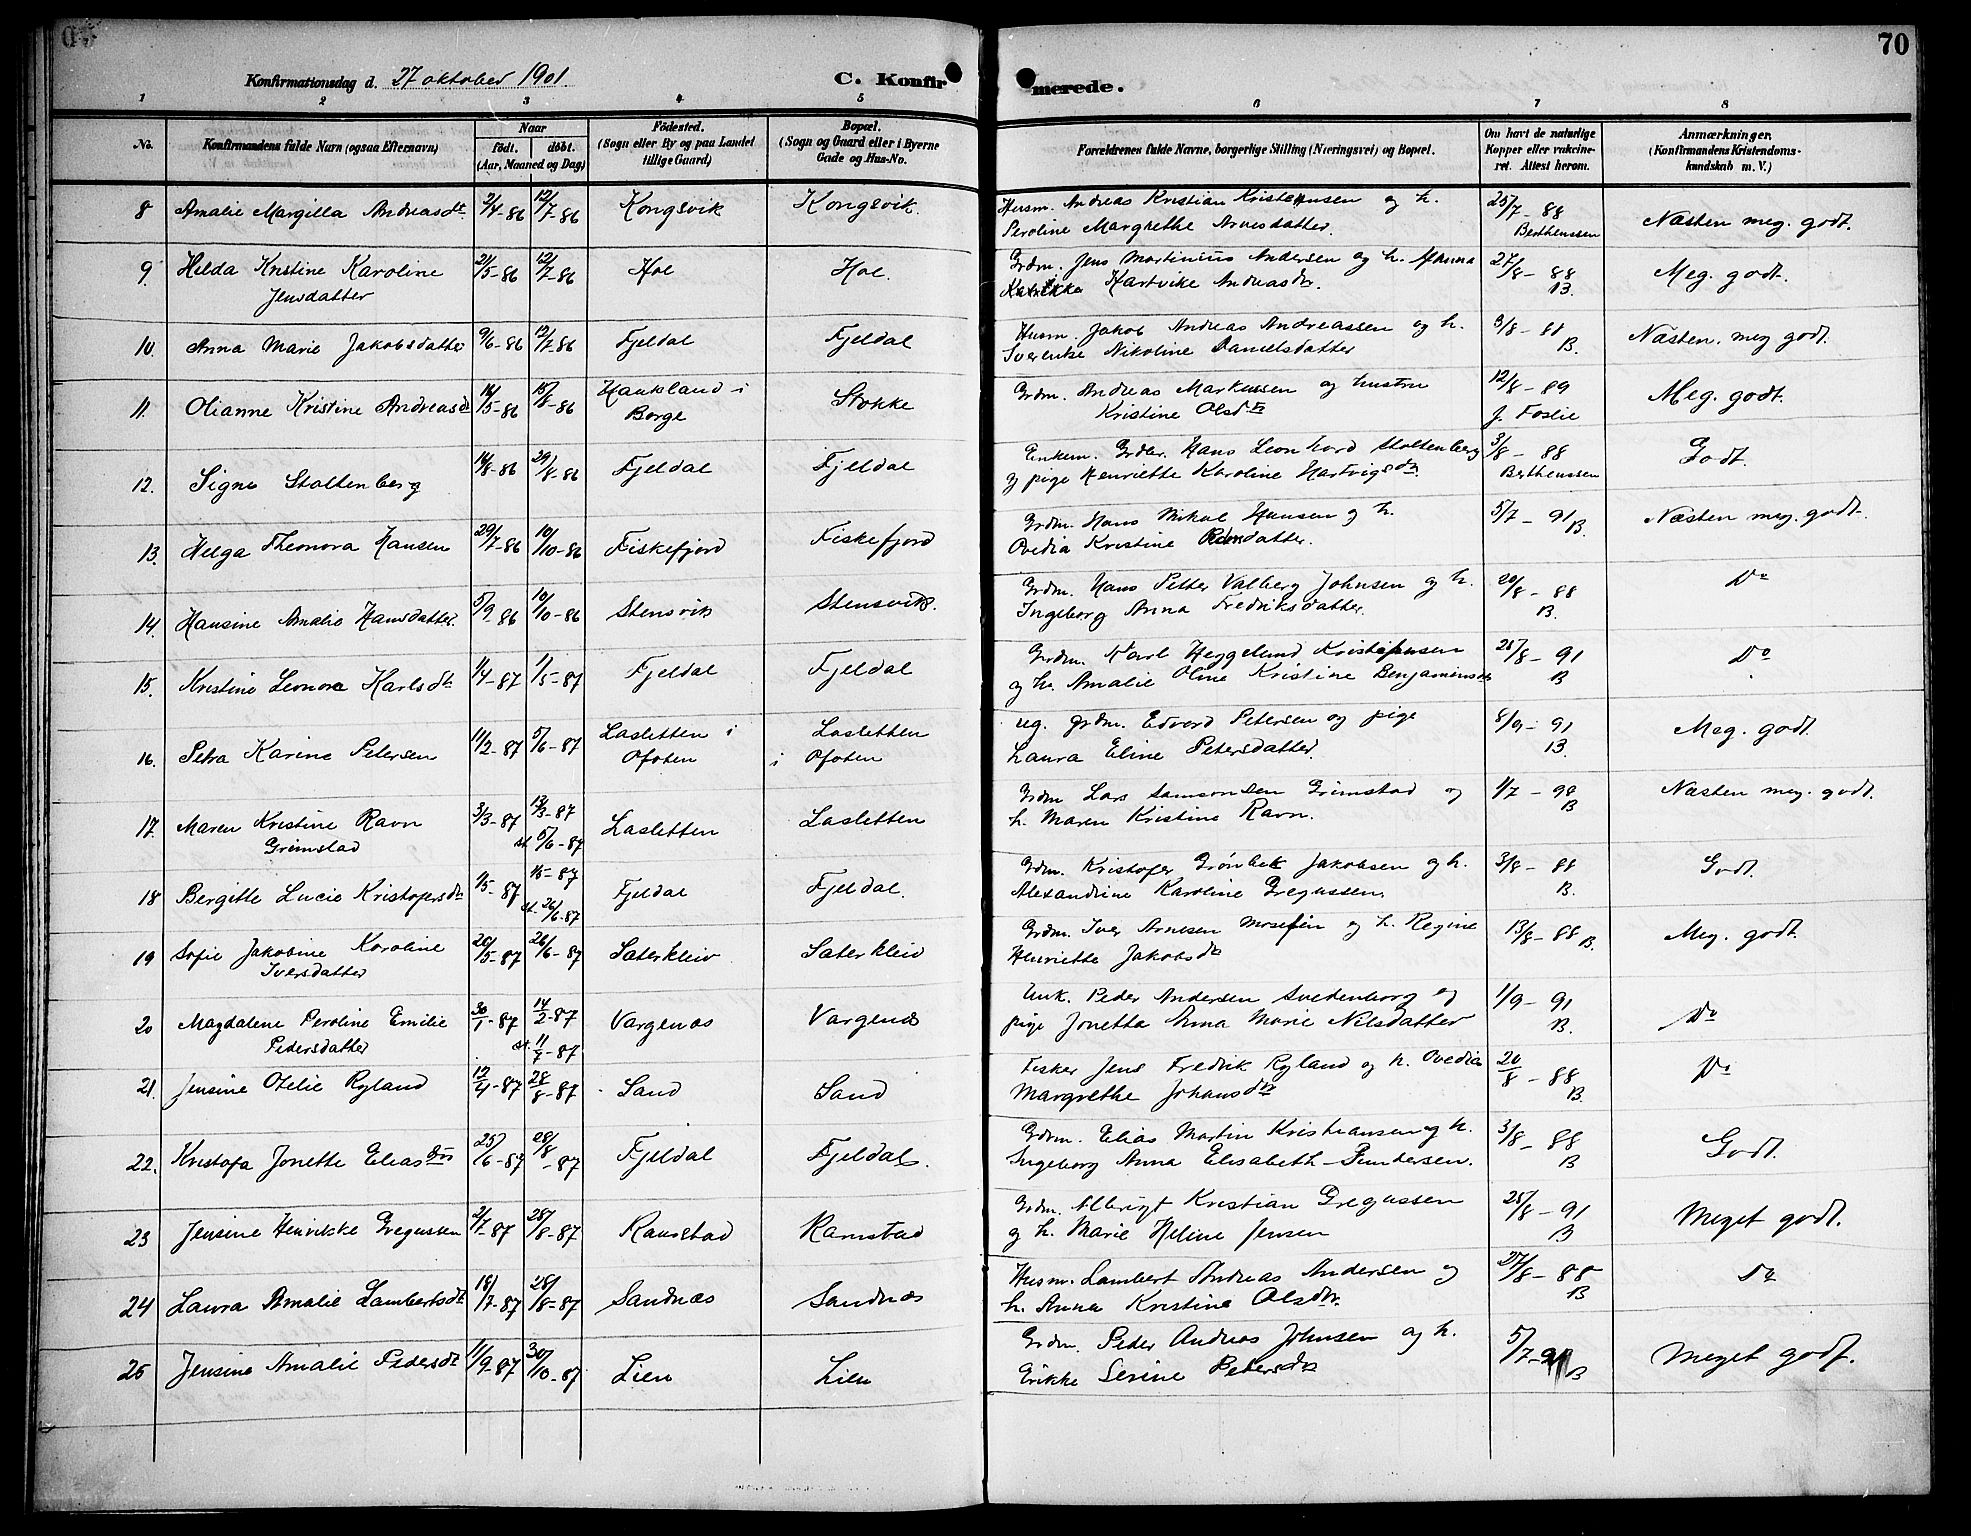 70
Konfirmationsdag d. 27 oktober 1901. C. Konfirmerede.
1 2 3 4 5 6 7 8
No. Konfirmandens fulde Navn (ogsaa Efternavn) Naar født. døbt. (Aar, Maaned og Dag) Fødested. (Sogn eller By og paa Landet tillige Gaard) Bopæl. (Sogn og Gaard eller i Byerne Gade og Hus-No. Forældrenes fulde Navne, borgerlige Stilling (Næringsvei) og Bopæl. Om havt de naturlige Kopper eller vakcineret. Attest herom. Anmærkninger. (Konfirmandens Kristendomskundskab m. V.)
8 Amalie Margilla Andreasdtr 2/4-86 12/7-86 Kongsvik Kongsvik. Husm. Andreas Kristian Kristensen og h. 25/7-88
Peroline Margrethe Arnesdatter. Berthenssen Næsten meg. godt.
9. Hilda Kristine Karoline 21/5-86 12/7-86 Hol Hol. Grdm. Jens Martinius Andersen og h. Hanna 27/8-88
Jensdatter Hartvike Andreasdtr. B. Meg. godt.
10. Anna Marie Jakobsdatter 9/6-86 12/7-86 Fjeldal Fjeldal Husm. Jakob Andreas Andreassen og h. 3/8-88
Nikoline Danielsdatter B. Næsten. meg godt.
11. Olianne Kristine Andreasdtr 14/5-86 15/8-86 Haukland i Stokke Grdm. Andreas Markussen og hustru 12/8-89
Borge Kristine Olsdtr J. Foslie Meg. godt.
12. Signe Stoltenberg 14/8-86 29/8-86 Fjeldal Fjeldal Enkem. Grdbr. Hans Leonhard Stoltenberg 3/8-88
og pige Henriette Karoline Hartvigsdtr Berthenssen Godt.
13. Helga Theonora Hansen 29/7-86 10/10-86 Fiskefjord Fiskefjord Grdm. Hans Mikal Hansen og h. 5/7-91
Ovedia Kristine B. Næsten meg. godt.
14. Hansine Amalie Hansdatter. 5/9-86 10/10-86 Stensvik Stensvik. Grdm. Hans Petter Valberg Johnsen og h. 20/8-88
Ingeborg Anna Fredriksdatter. B. Do
15. Kristine Leonora Karlsdtr 1/4-87 1/5-87 Fjeldal Fjeldal Grdm. Karl Heggelund Kristensen 28/8-91
og h. Amalie Oline Kristine Benjaminsdtr B Do
16. Petra Karine Petersen 11/2-87 5/6-87 Lasletten i Lasletten ug. grdm. Edvard Petersen og pige 8/9-91
Ofoten i Ofoten Laura Eline Petersdatter. B. Meg. godt.
17. Maren Kristine Ravn 3/3-87 13/3-87 Lasletten Lasletten Grdm Lars Samsonsen Grimstad og 1/7-98
Grimstad st. 5/6-87 h. Maren Kristine Ravn. B Næsten meg. godt.
18 Bergitte Lucie Kristofersdtr 1/5-87 1/5-87 Fjeldal Fjeldal. Grdm. Kristofer Grønbek Jakobsen og h. 3/8-88
st. 26/6-87 Alexandrine Karoline Gregussen. B. Godt.
19 Sofie Jakobine Karoline 20/5-87 26/6-87 Sæterkleiv Sæterkleiv Grdm. Iver Arnesen og h. Regine 13/8-88 B.
Iversdatter Henriette Jakobsdtr Meg. godt.
20 Magdalene Peroline Emilie 30/1-87 14/2-87 Vargenæs Vargenæs Unk. Peder Andersen Svedenborg og 1/9-91
Pedersdatter st. 11/7-87 pige Jonetta Anna Marie Nilsdatter B. Do
21. Jensine Otelie Ryland 12/4-87 28/8-87 Sand Sand Fisker Jens Fredrik Ryland og h. Ovedia 20/8-88
Margrethe Johansdtr B. Do
22. Kristofa Jonette Eliasdtr 25/6-87 28/8-87 Fjeldal Fjeldal. Grdm. Elias Martin Kristiansen og h. 3/8-88
Ingeborg Anna Elisabeth B Godt.
23 Jensine Henrikke Gregussen 2/7-87 28/8-87 Ramstad Ramstad Grdm. Albrigt Kristian Gregussen 28/8-91
og h. Marie Heline Jensen B Meget godt.
24 Laura Amalie Lambertsdtr 18/7-87 28/8-87 Sandnæs Sandnæs Husm. Lambert Andreas Andersen og 27/8-88
h. Anna Kristine Olsdtr. B Do
25 Jensine Amalie Pedersdtr 11/9-87 30/10-87 Lien Lien Grdm. Peder Andreas Johnsen og h. 5/7-91
Erikke Serine Petersdtr B Meget godt.